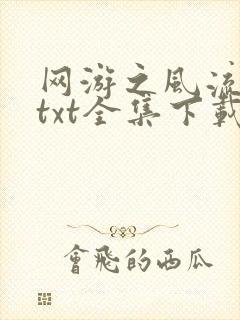 网游之风流
txt全集下载
會飛的西瓜